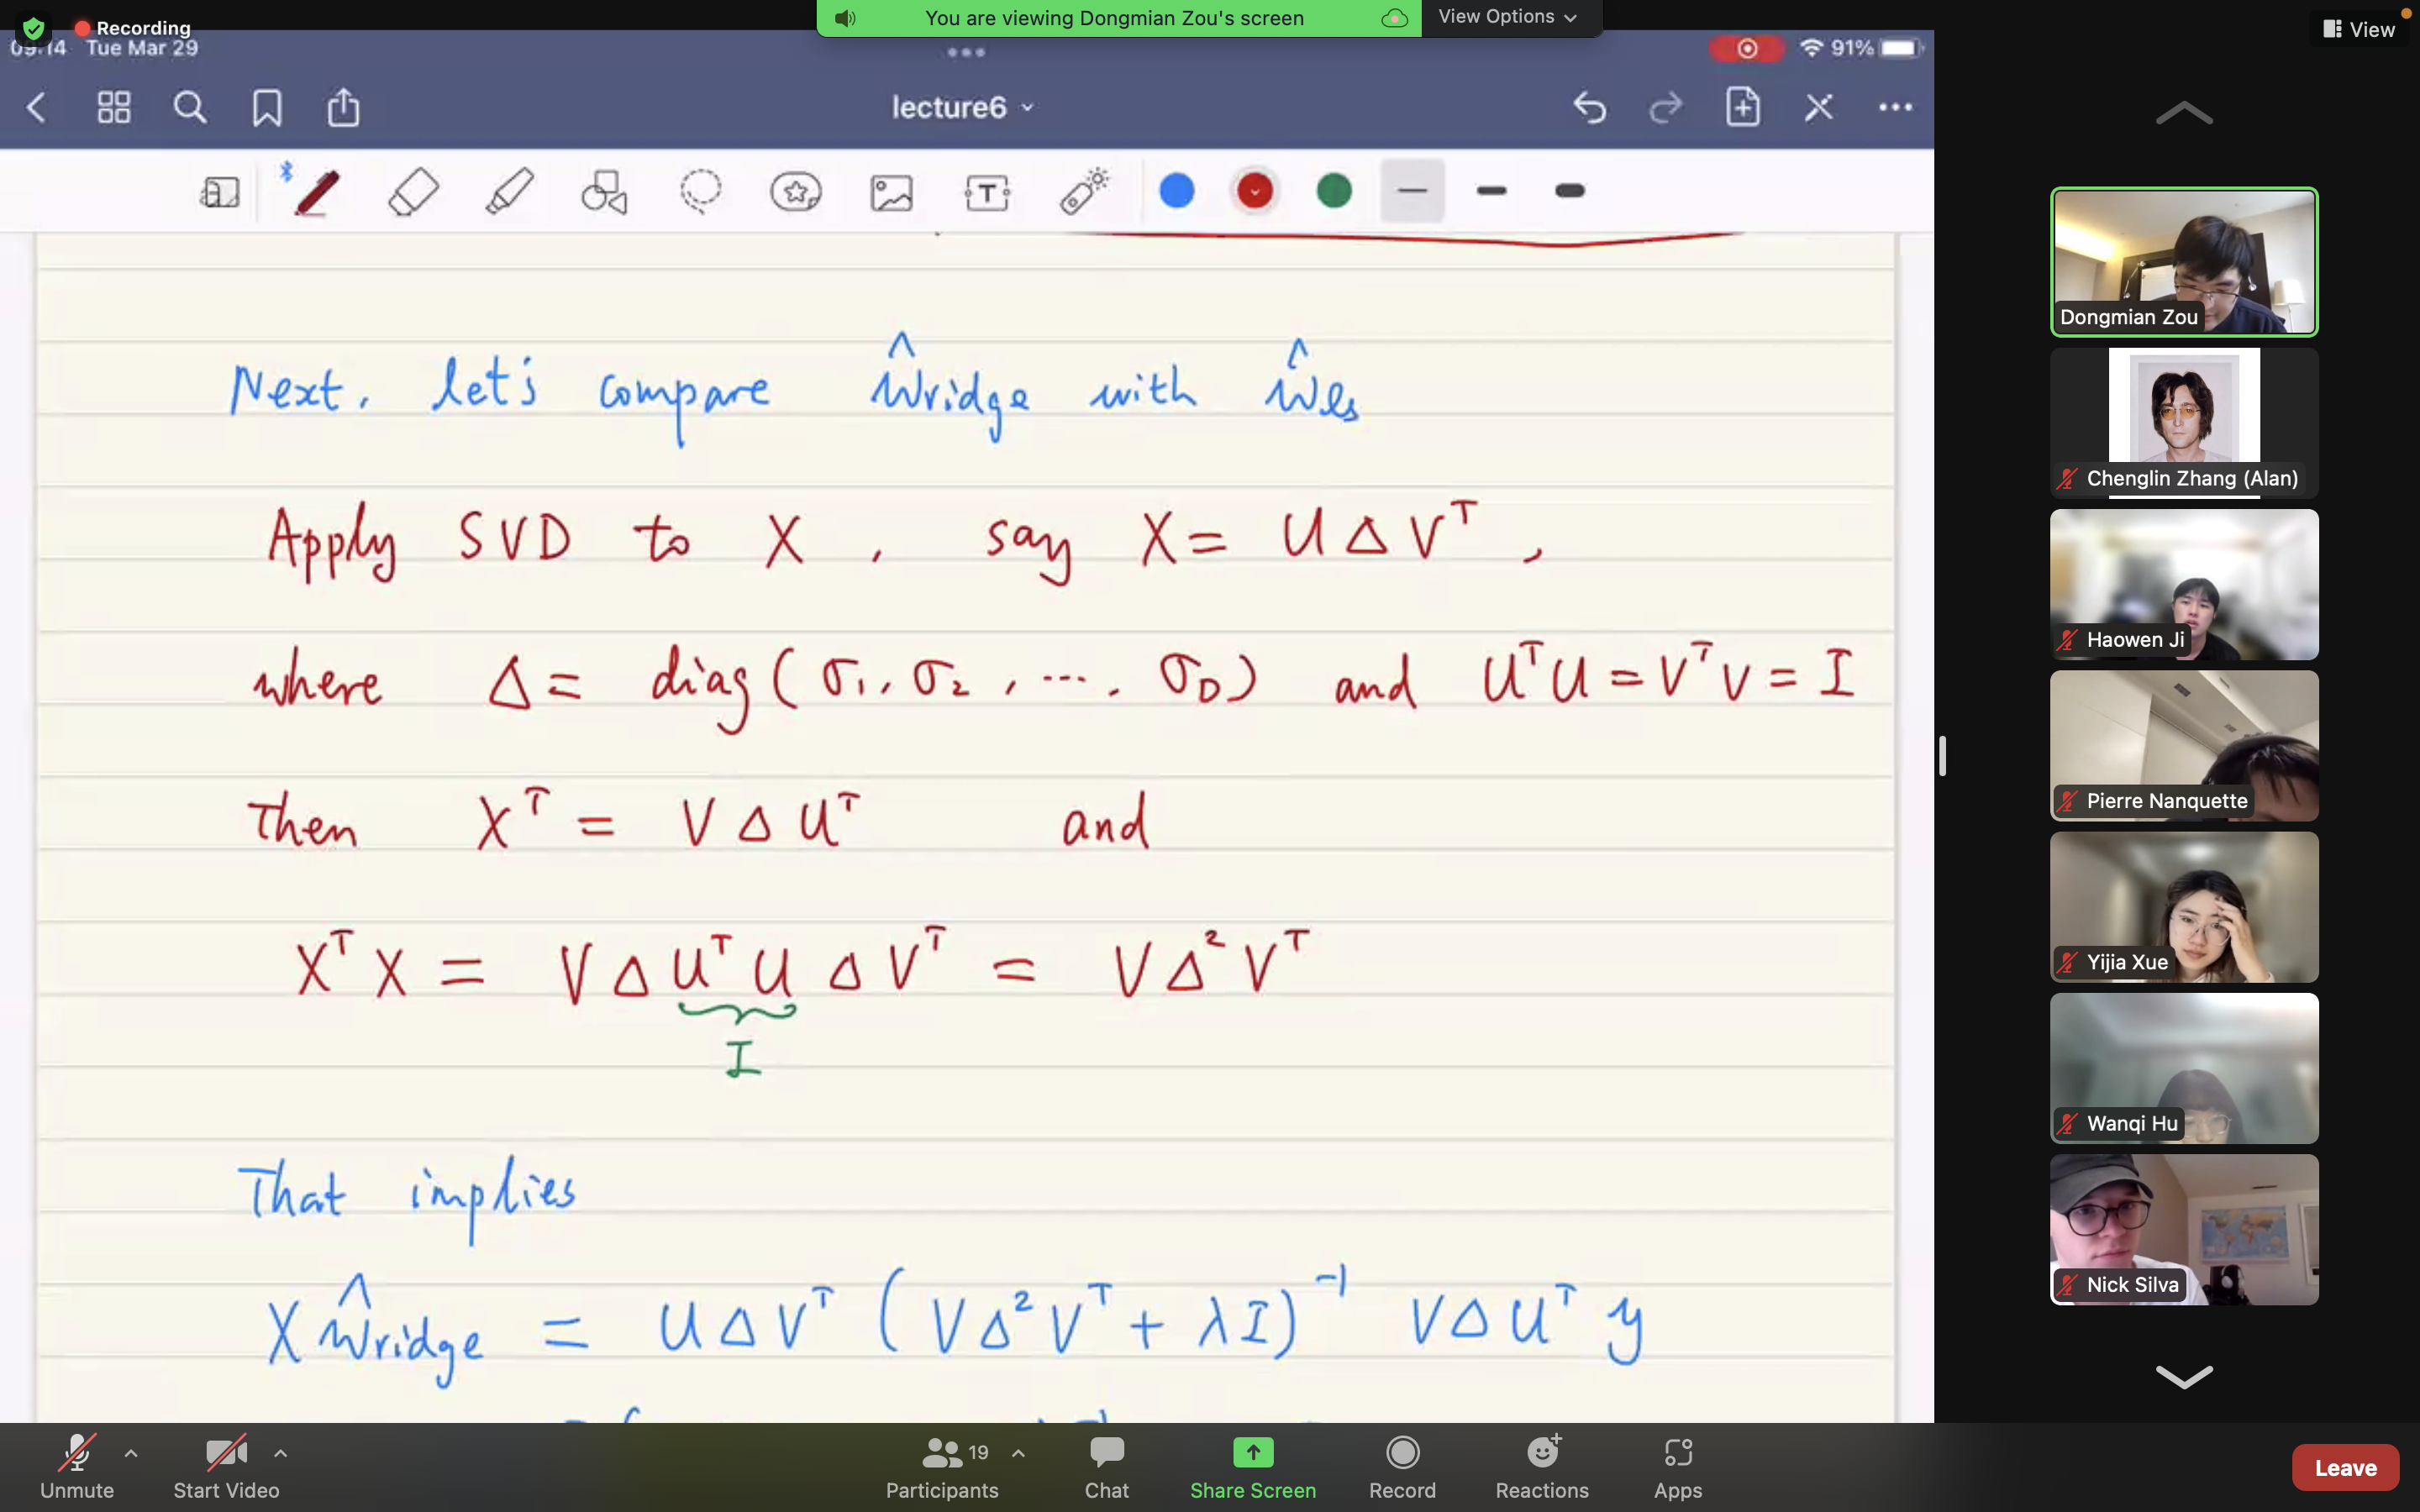 Recording
You are viewing Dongmian Zou's screen
View Options
View
09:14 Tue Mar 29
91%
lecture6
Next, let's compare ŵridge with ŵls
Apply SVD to X, say X = U Δ Vᵀ,
where Δ = diag(σ₁, σ₂, ..., σ_D) and UᵀU = VᵀV = I
then Xᵀ = V Δ Uᵀ and
XᵀX = V Δ UᵀU Δ Vᵀ = V Δ² Vᵀ
I
That implies
X ŵridge = U Δ Vᵀ (V Δ² Vᵀ + λI)⁻¹ V Δ Uᵀ y
Dongmian Zou
Chenglin Zhang (Alan)
Haowen Ji
Pierre Nanquette
Yijia Xue
Wanqi Hu
Nick Silva
Unmute
Start Video
19
Participants
Chat
Share Screen
Record
Reactions
Apps
Leave